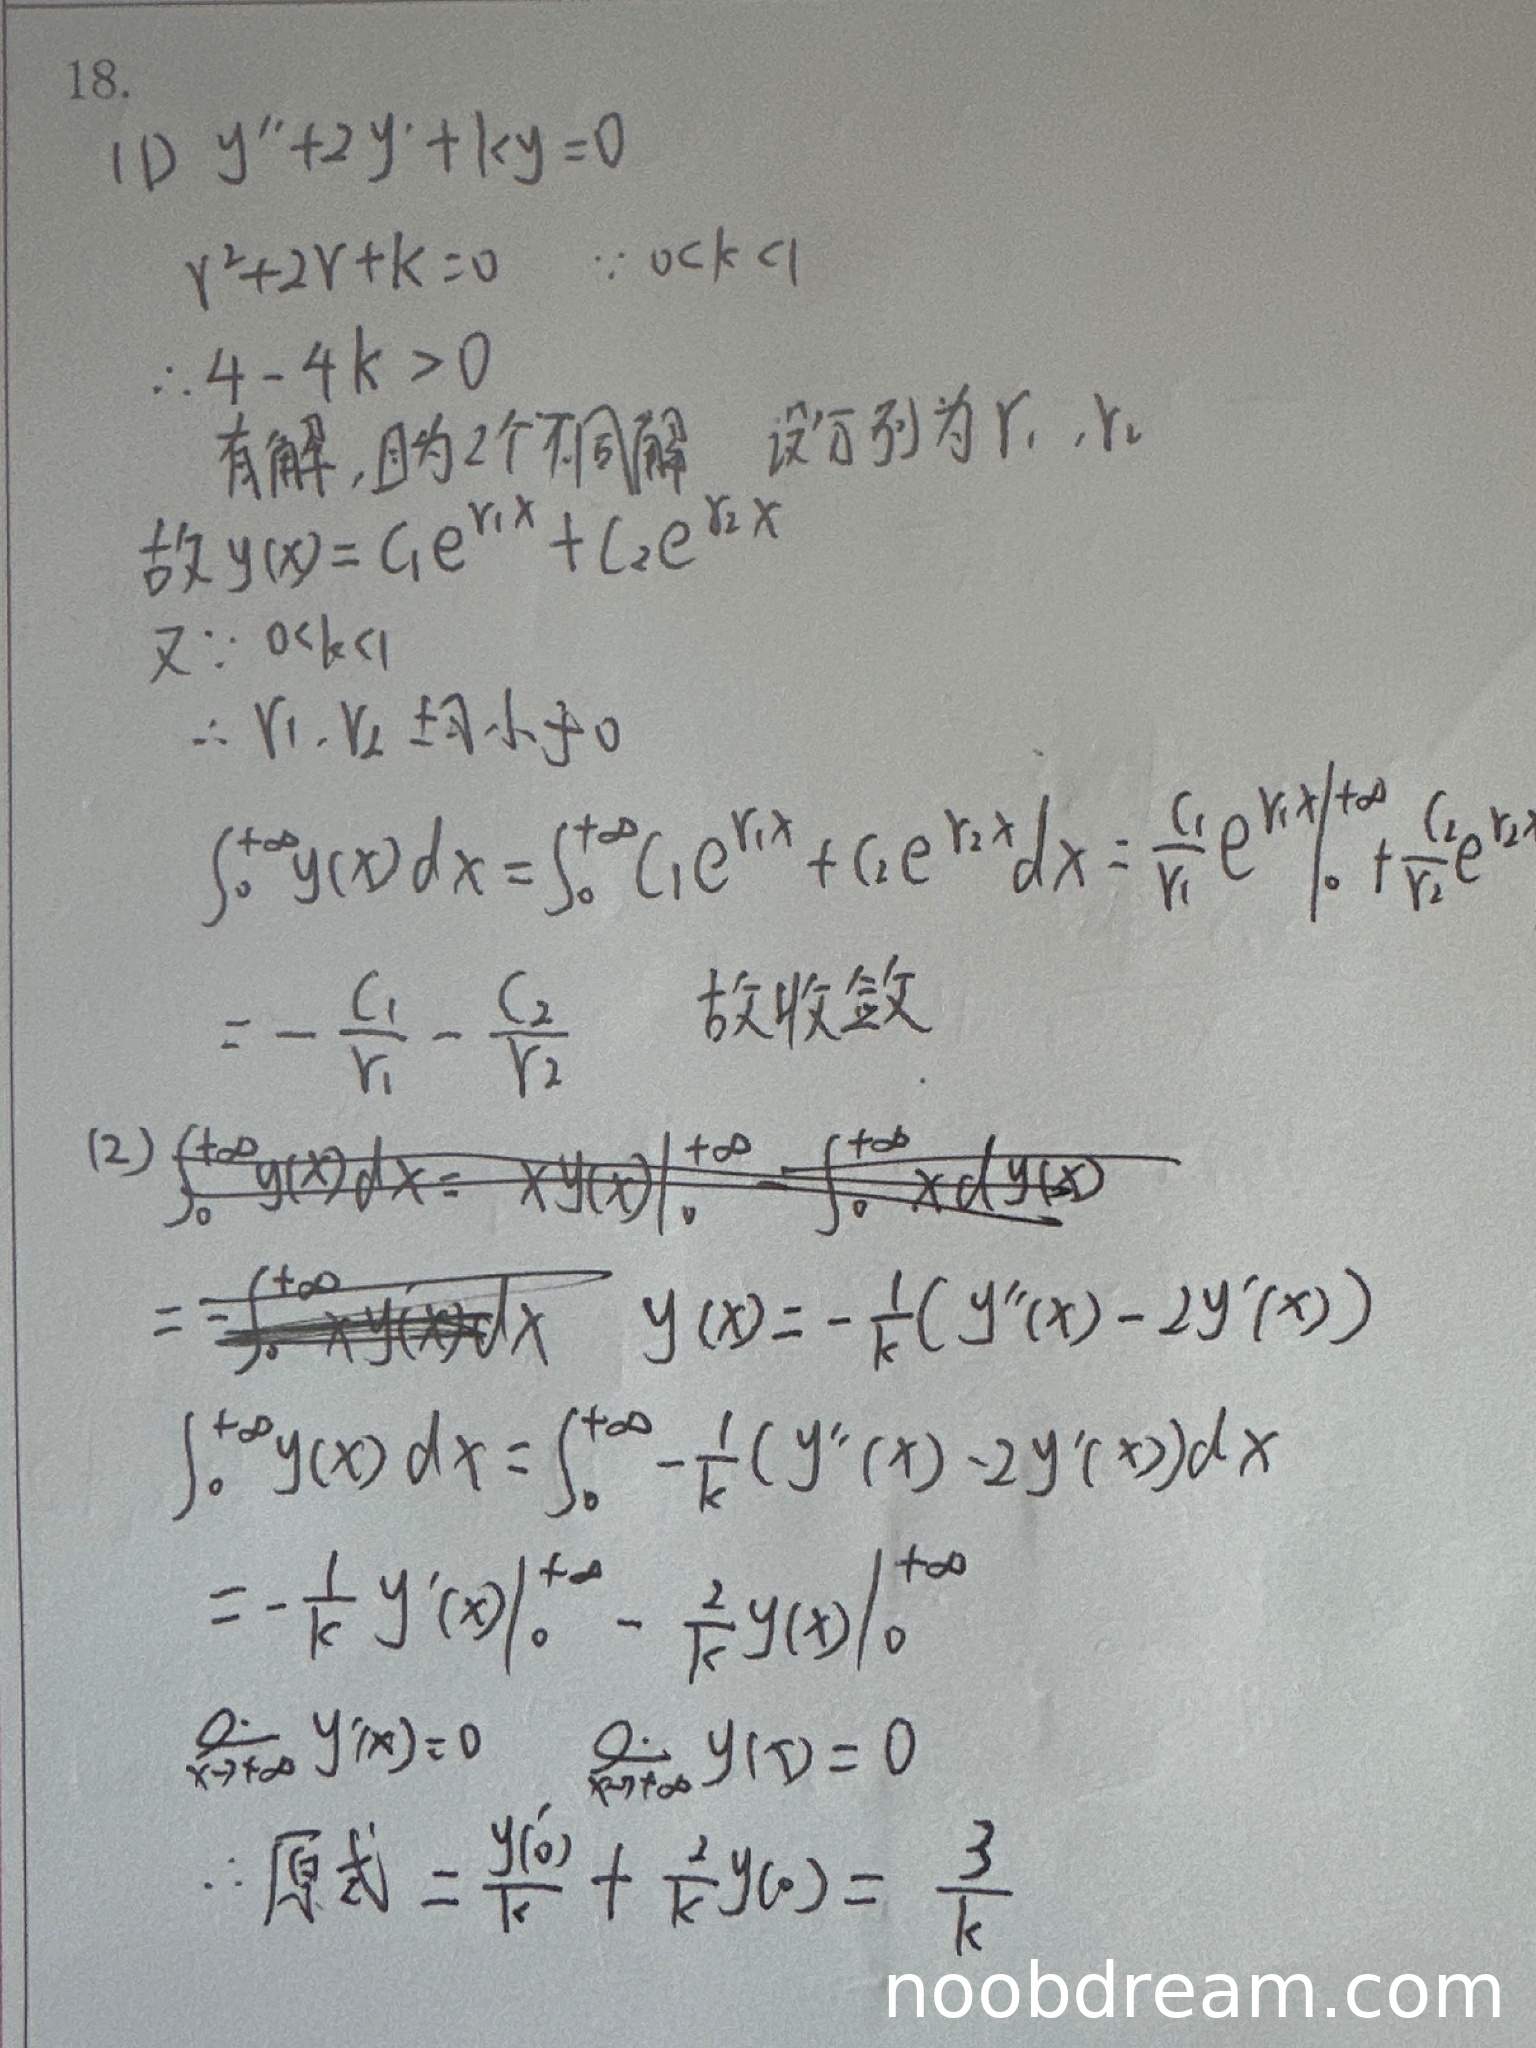 18.
(1) y''+2y'+ky=0
r²+2r+k=0 ∵ 0<k<1
∴ 4-4k>0
有解,且为2个不同解 设分别为r₁,r₂
故 y(x)=C₁e^{r₁x}+C₂e^{r₂x}
又∵ 0<k<1
∴ r₁,r₂ 均小于0
∫₀^{+∞} y(x)dx = ∫₀^{+∞} C₁e^{r₁x}+C₂e^{r₂x}dx = \frac{C₁}{r₁}e^{r₁x}|₀^{+∞} + \frac{C₂}{r₂}e^{r₂x}
= -\frac{C₁}{r₁} - \frac{C₂}{r₂} 故收敛
(2) ∫₀^{+∞} y(x)dx = xy(x)|₀^{+∞} - ∫₀^{+∞} xdy(x)
= -∫₀^{+∞} xy'(x)dx y(x) = -\frac{1}{k}(y''(x)-2y'(x))
∫₀^{+∞} y(x)dx = ∫₀^{+∞} -\frac{1}{k}(y''(x)-2y'(x))dx
= -\frac{1}{k}y'(x)|₀^{+∞} - \frac{2}{k}y(x)|₀^{+∞}
lim_{x→+∞} y'(x)=0 lim_{x→+∞} y(x)=0
∴ 原式 = \frac{y'(0)}{k} + \frac{2}{k}y(0) = \frac{3}{k}
noobdream.com